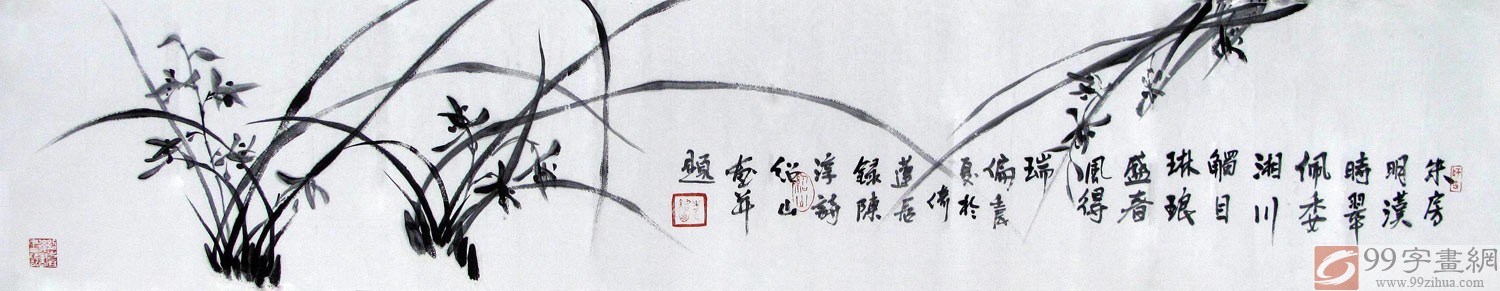 朱房
明漢
時翠
佩委
湘川
觸目
琳琅
盛春
風得
瑞
偏歲
夏於
倚
蓮居
錄陳
淳詩
紹山
畫并
題
99字畫網
www.99zihua.com